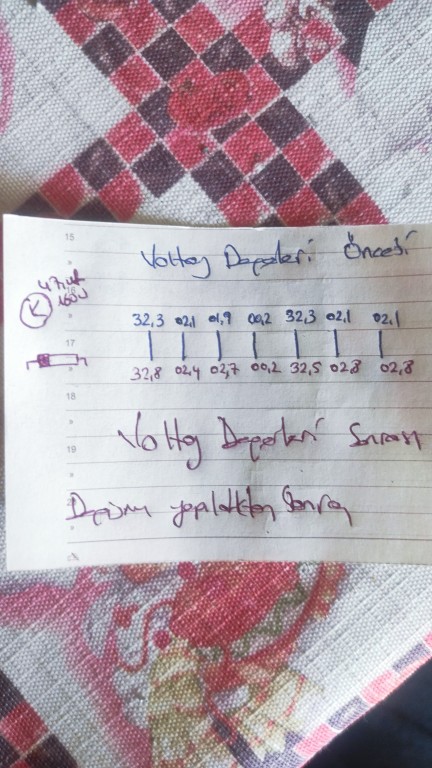 15
Voltaj Değerleri Öncesi
47uf
160V
K
32,3 02,1 01,9 00,2 32,3 02,1 02,1
17
32,8 02,4 02,7 00,2 32,5 02,8 02,8
18
Voltaj Değerleri Sonrası
19
Değişim yapıldıktan Sonra